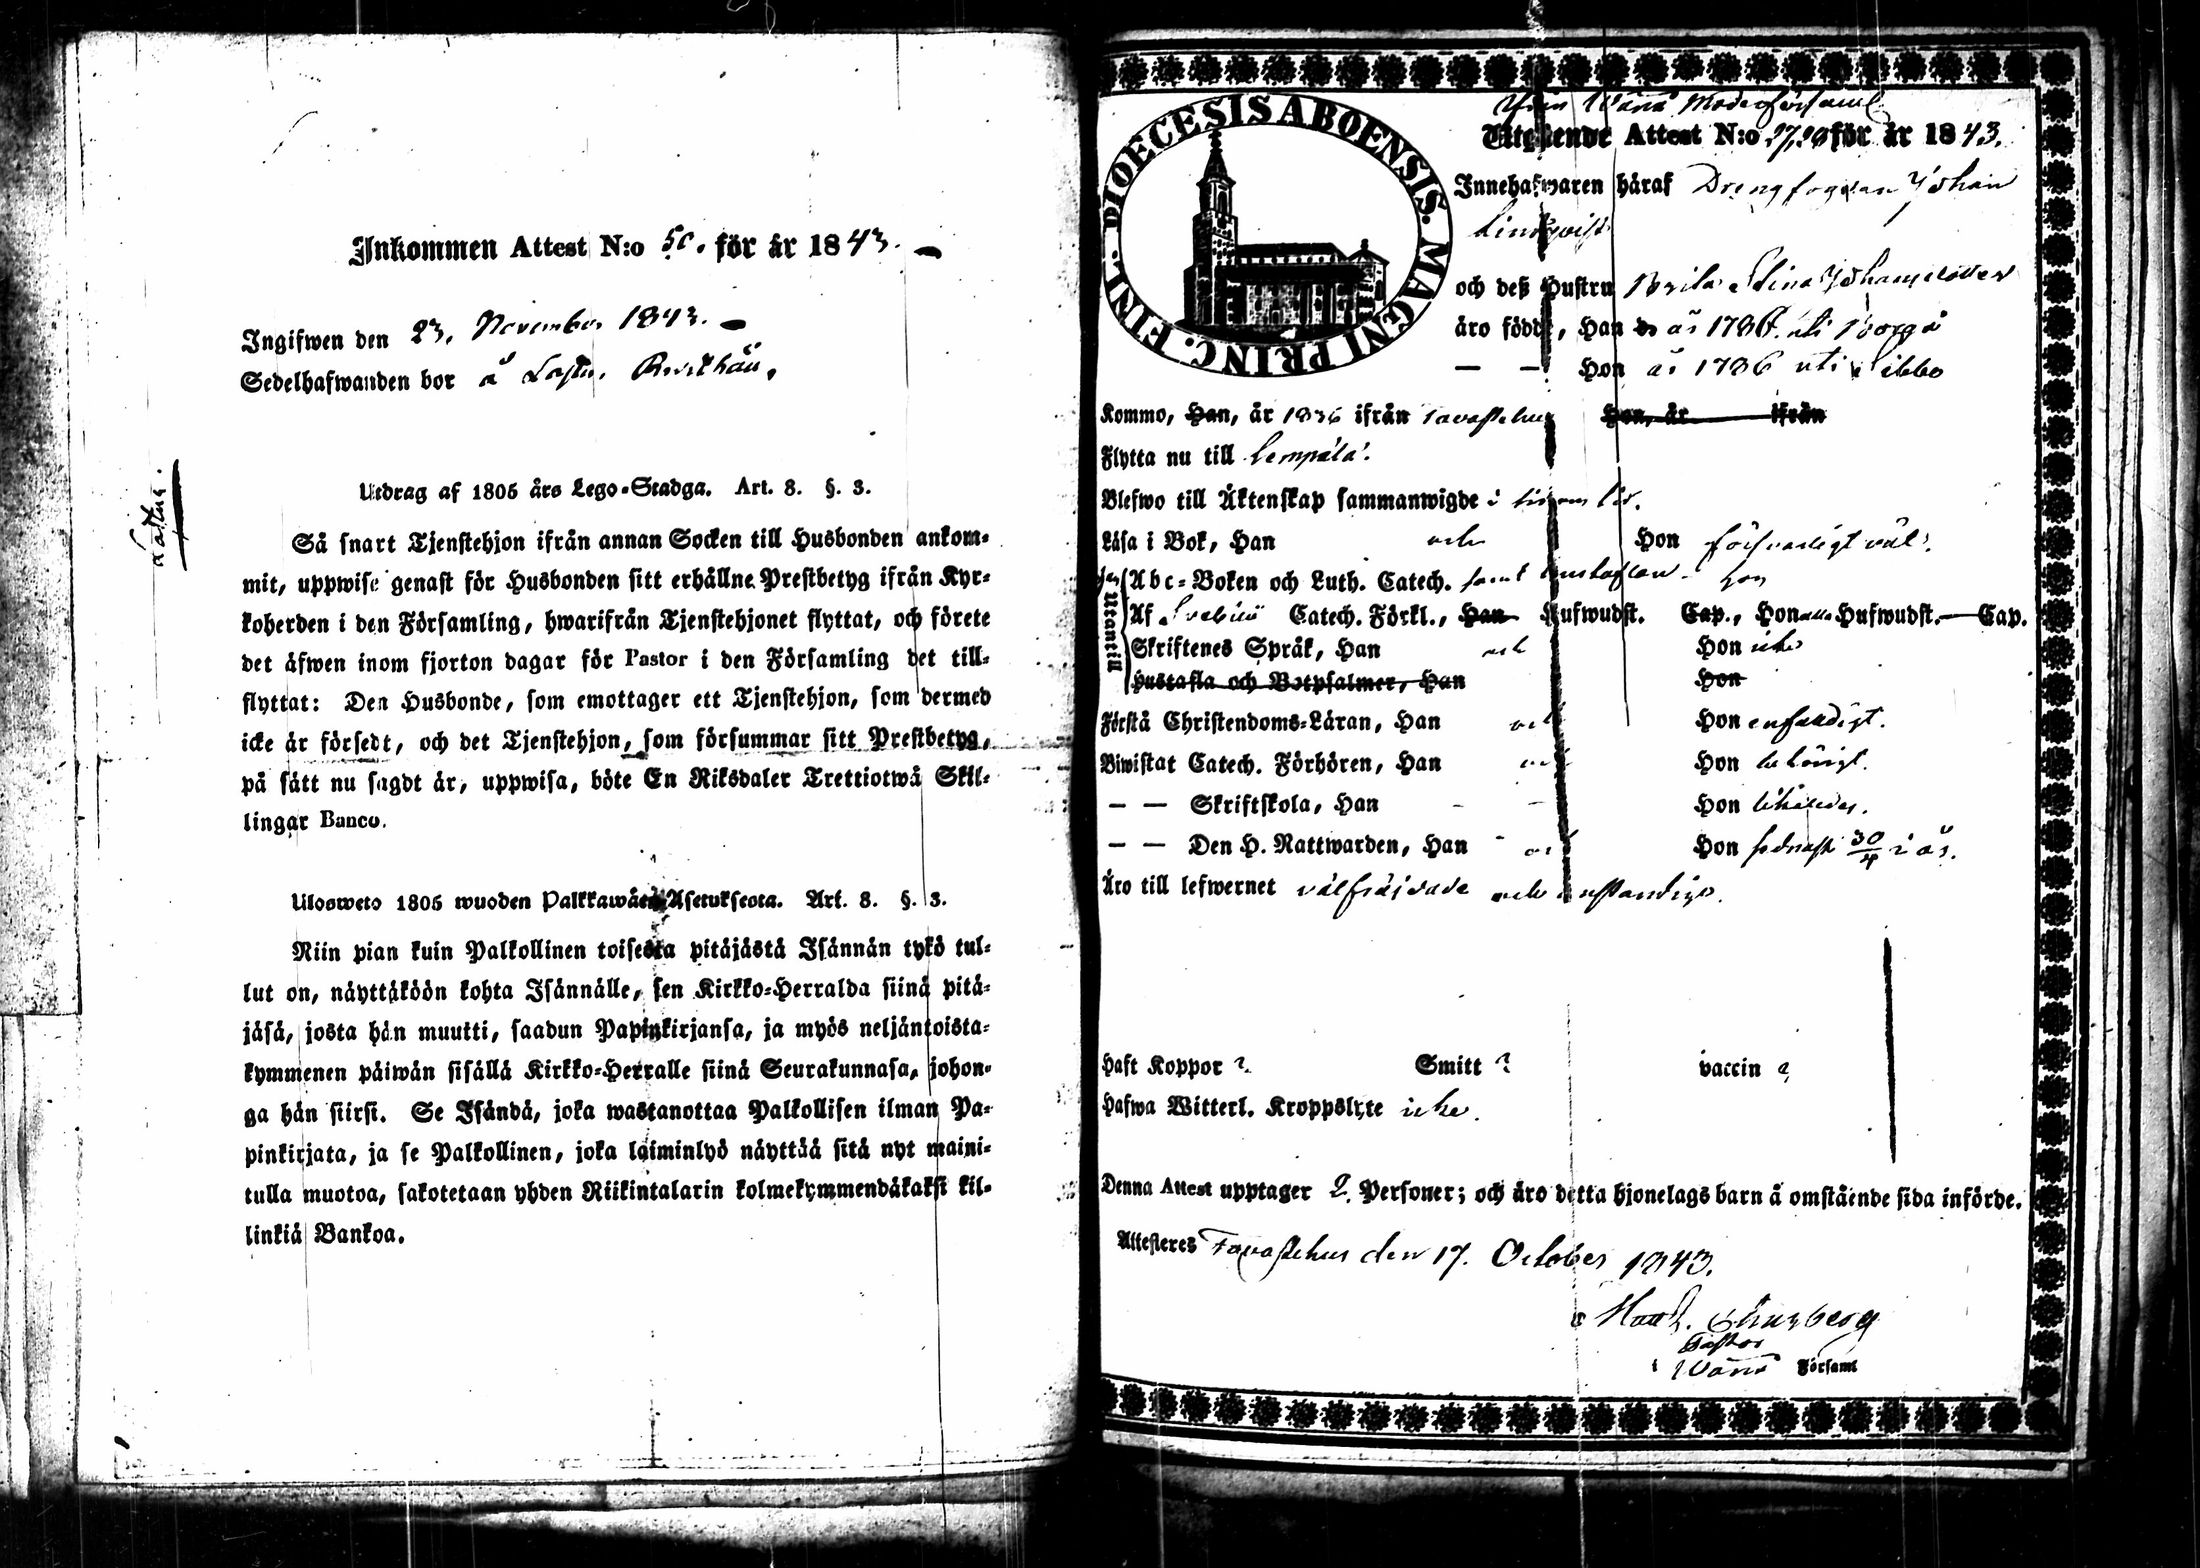 Inkommen Attest N:o 50. för år 1843.
Ingifwen den 23. November 1843.
Sedelhafwanden bor å Lastu.
Lastu.
Utdrag af 1805 års Lego-Stadga. Art. 8. §. 3.
Så snart Tjenstehjon ifrån annan Socken till Husbonden ankom-
mit, uppwise genast för Husbonden sitt erhållne Prestbetyg ifrån Kyr-
koherden i den Församling, hwarifrån Tjenstehjonet flyttat, och förete
det äfwen inom fjorton dagar för Pastor i den Församling det till-
flyttat: Den Husbonde, som emottager ett Tjenstehjon, som dermed
icke är försedt, och det Tjenstehjon, som försummar sitt Prestbetyg,
på sätt nu sagdt är, uppwisa, böte En Riksdaler Trettiotwå Skil-
lingar Banco.
Uloswets 1805 wuoden Palkkawäen Asetuksesta. Art. 8. §. 3.
Niin pian kuin Palkollinen toisesta pitäjästä Isännän tykö tul-
lut on, näyttäköön kohta Isännälle, sen Kirkko-Herralda siinä pitä-
jäsä, josta hän muutti, saadun Papinkirjansa, ja myös neljäntoista-
kymmenen päiwän sisällä Kirkko-Herralle siinä Seurakunnasa, johon-
ga hän siirsi. Se Isändä, joka wastanottaa Palkollisen ilman Pa-
pinkirjata, ja se Palkollinen, joka laiminlyö näyttää sitä nyt maini-
tulla muotoa, sakotetaan yhden Riikintalarin kolmekymmendäkaksi kil-
linkiä Bankoa.
DIOECESIS ABOENSIS. MAGNI PRINC. FINL.
från Wånå Moderförsaml
Utgående Attest N:o för år 1843.
Innehafwaren häraf Drengfogden Johan
Lindqvist
och deß Hustru Brita Stina Johansdotter
äro födde, Han år 1786. uti Borgå
— — Hon år 1786 uti Sibbo
Kommo, Han, år 1836 ifrån Tavastehus Hon, år ifrån
Flytta nu till Lempälä.
Blefwo till Äktenskap sammanwigde i sinom tid.
Läsa i Bok, Han och Hon försvarligt väl.
Utantill
Abc-Boken och Luth. Catech. samt hustaflan
Af Svebilii Catech. Förkl., Han Hufwudst. Cap., Hon Hufwudst. Cap.
Skriftenes Språk, Han och Hon icke
Hustafla och Botpsalmer, Han Hon
Förstå Christendoms-Läran, Han och Hon enfaldigt.
Biwistat Catech. Förhören, Han och Hon behörigt.
— — Skriftskola, Han - - Hon likaledes.
— — Den H. Nattwarden, Han och Hon sednast 30/4 i år.
Äro till lefwernet välfräjdade och anständige.
Haft Koppor ? Smitt ? vaccin ?
Hafwa Witterl. Kroppslyte icke.
Denna Attest upptager 2. Personer; och äro detta hjonelags barn å omstående sida införde.
Attesteres Tavastehus den 17. October 1843.
Pastor
i Wånå Församl